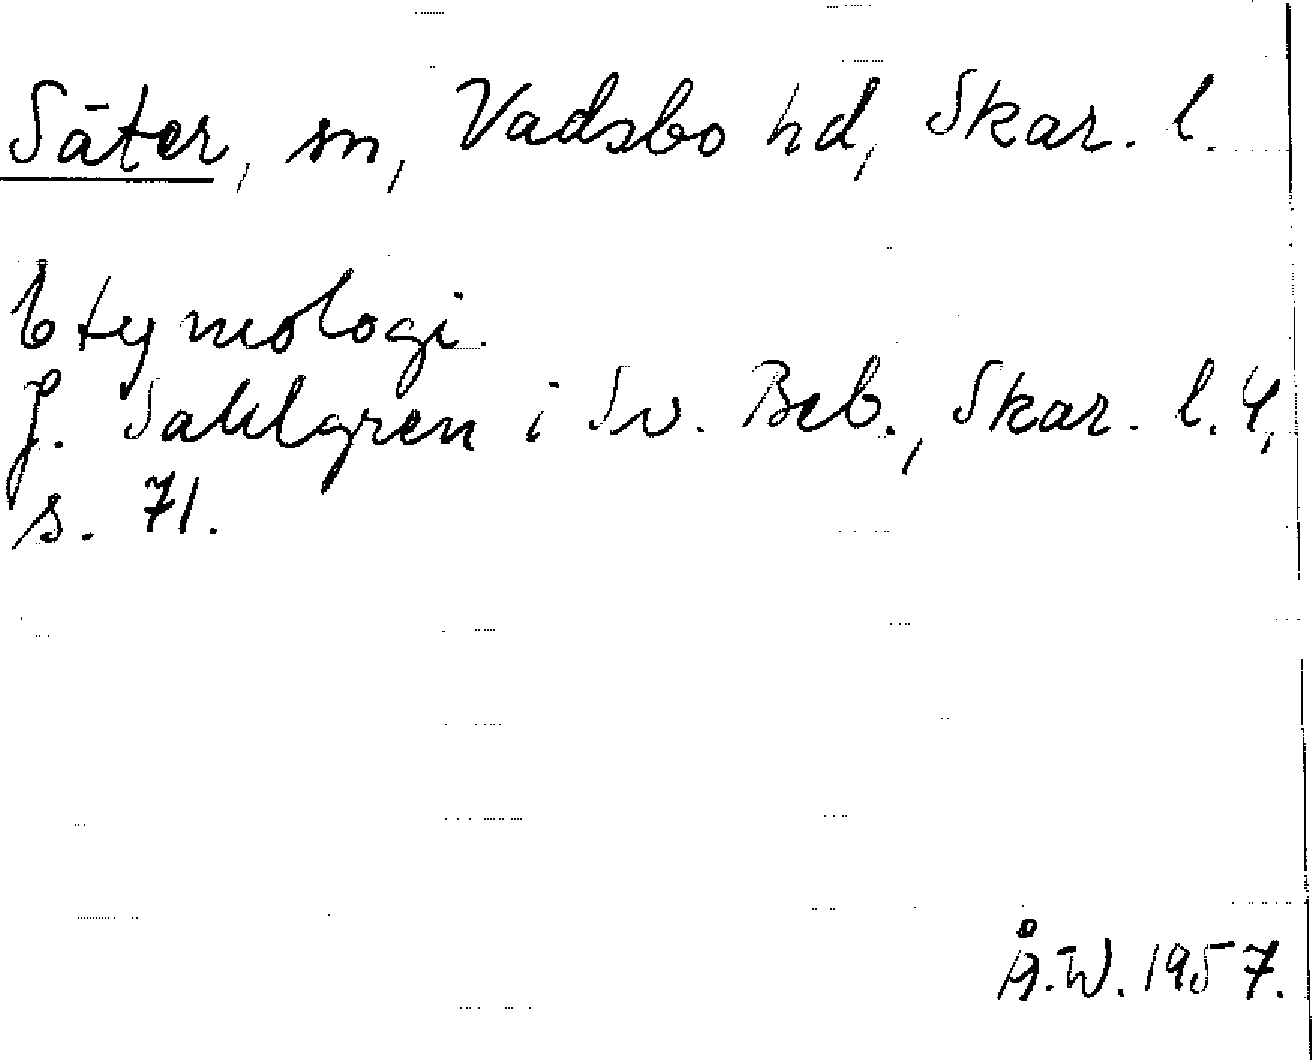 Säter, sn, Vadsbo hd, Skar. l.
Etymologi.
J. Sahlgren i Sv. Beb., Skar. l. 4,
s. 71.
Å.W. 1957.